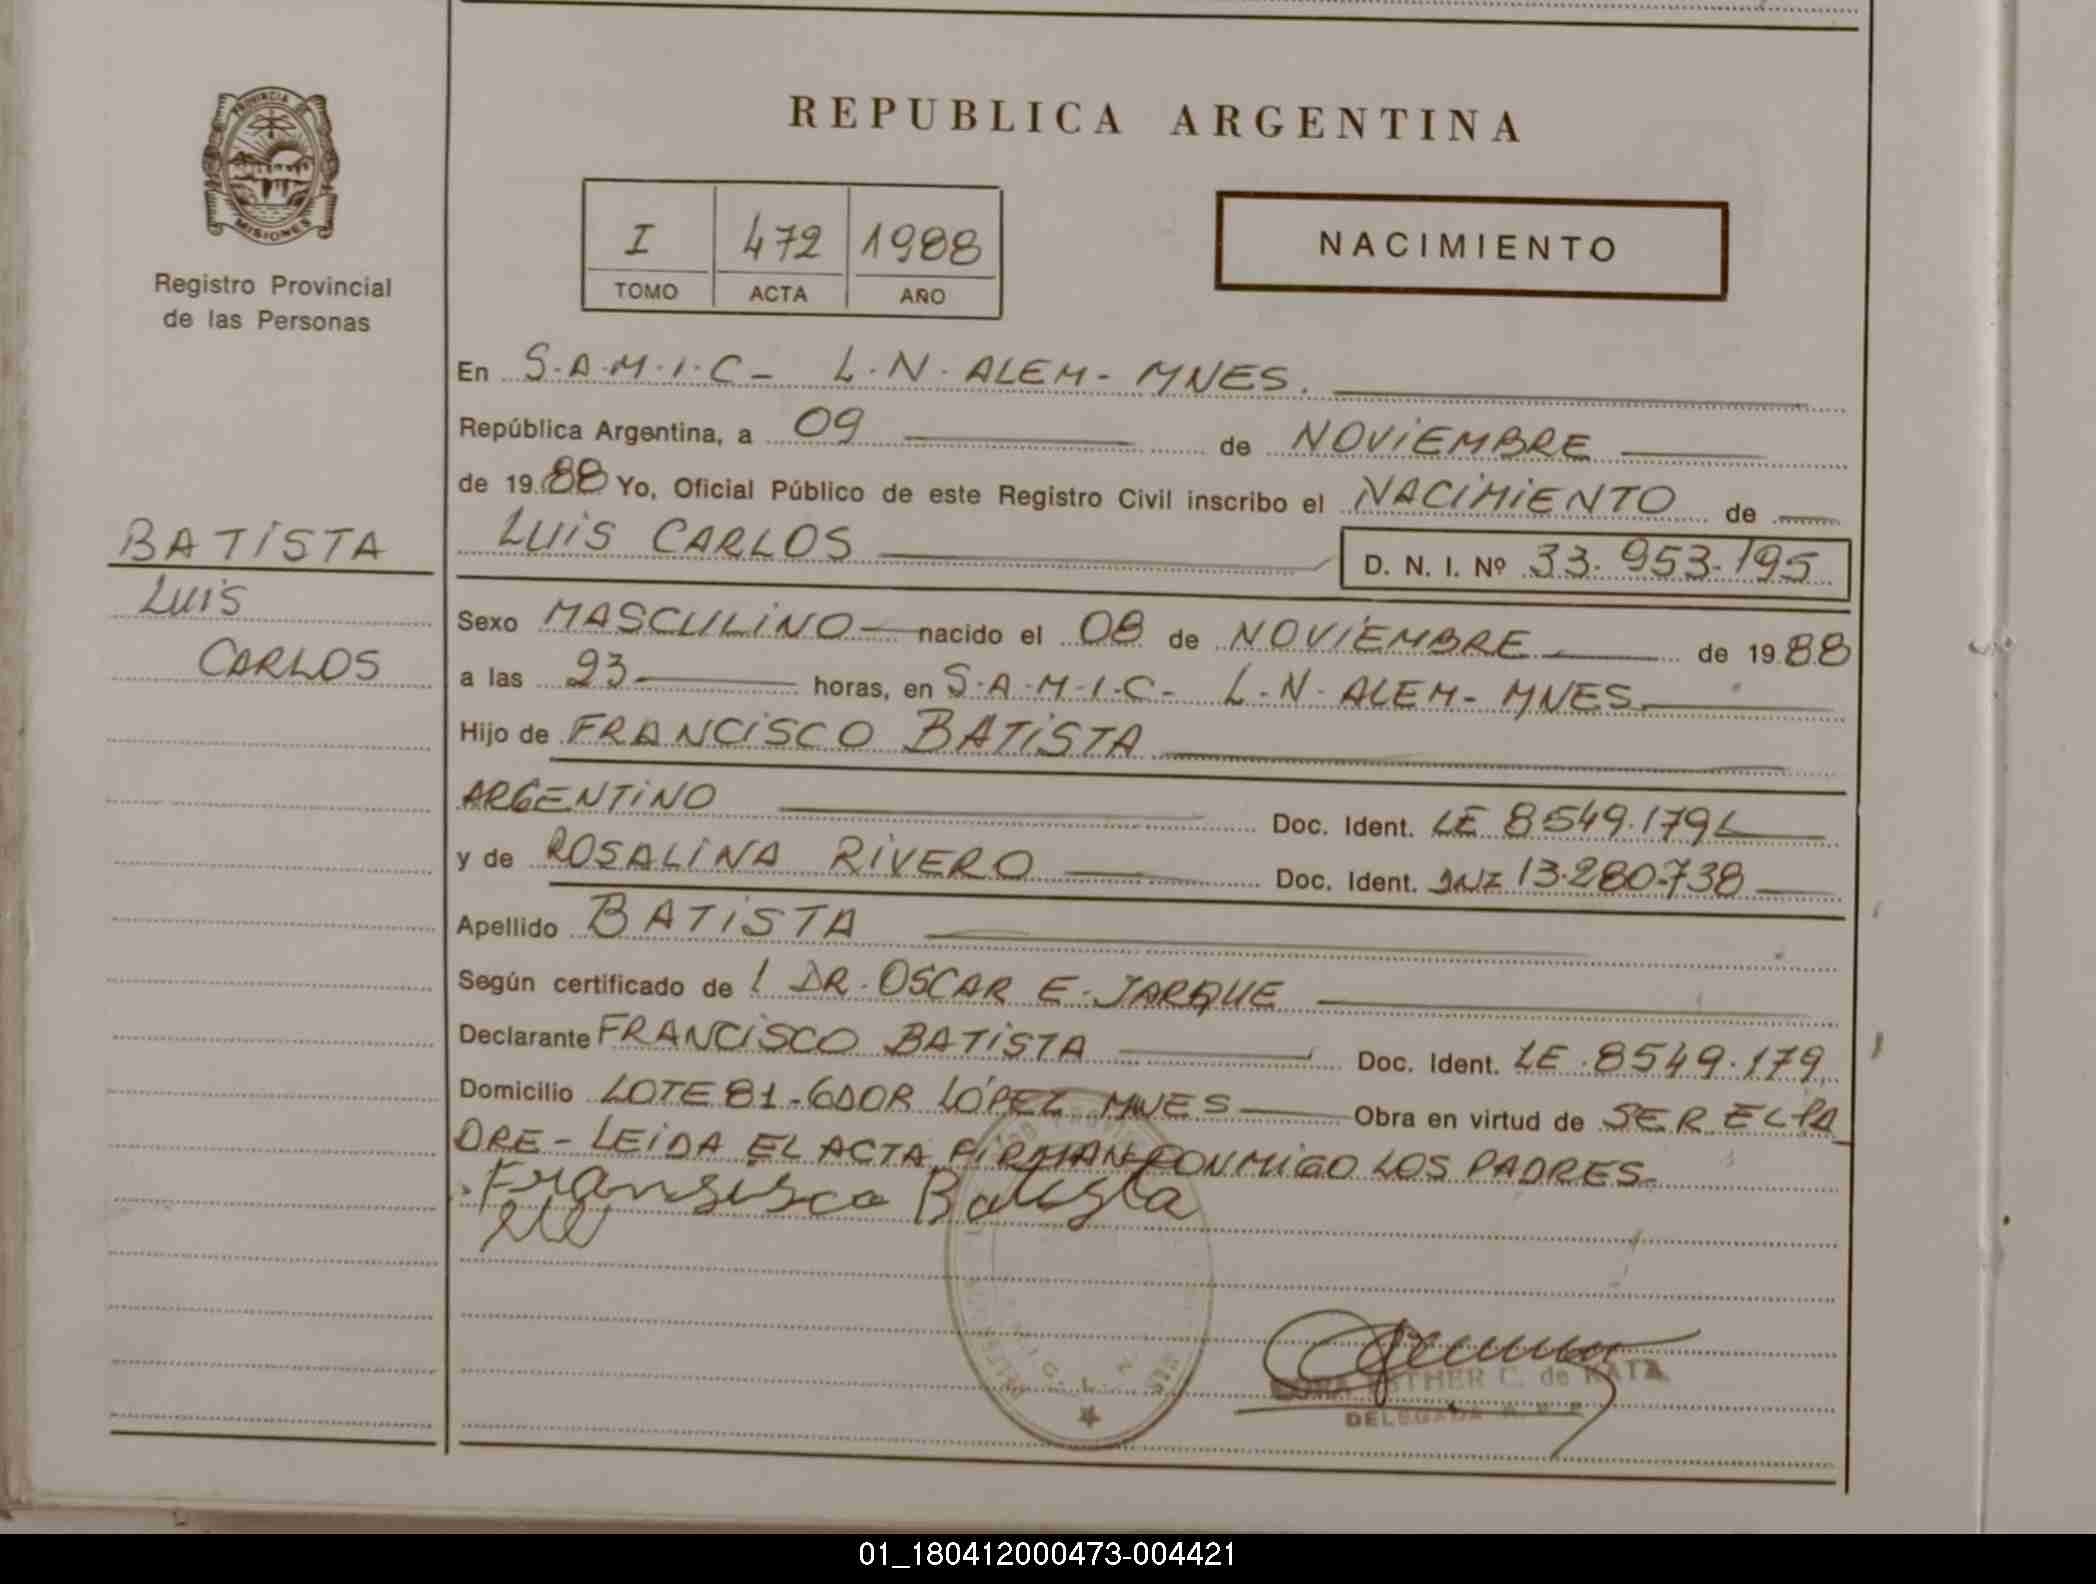 PROVINCIA DE
MISIONES
Registro Provincial
de las Personas
BATISTA
LUIS
CARLOS
REPUBLICA ARGENTINA
I 472 1988
TOMO ACTA AÑO
NACIMIENTO
En S.A.M.I.C- L.N. ALEM- MNES.
República Argentina, a 09 de NOVIEMBRE
de 19 88 Yo, Oficial Público de este Registro Civil inscribo el NACIMIENTO de
LUIS CARLOS D. N. I. Nº 33.953.195
Sexo MASCULINO nacido el 08 de NOVIEMBRE de 19 88
a las 23 horas, en S.A.M.I.C- L.N. ALEM- MNES.
Hijo de FRANCISCO BATISTA
ARGENTINO Doc. Ident. LE 8549.179
y de ROSALINA RIVERO Doc. Ident. DNI 13.280.738
Apellido BATISTA
Según certificado de l DR. OSCAR E. JARQUE
Declarante FRANCISCO BATISTA Doc. Ident. LE. 8549.179
Domicilio LOTE 81-GDOR LÓPEZ MNES Obra en virtud de SER EL PA
DRE- LEIDA EL ACTA FIRMAN CONMIGO LOS PADRES.
Fransisco Batista
ESTHER C. de RATA
DELEGADA
01_180412000473-004421